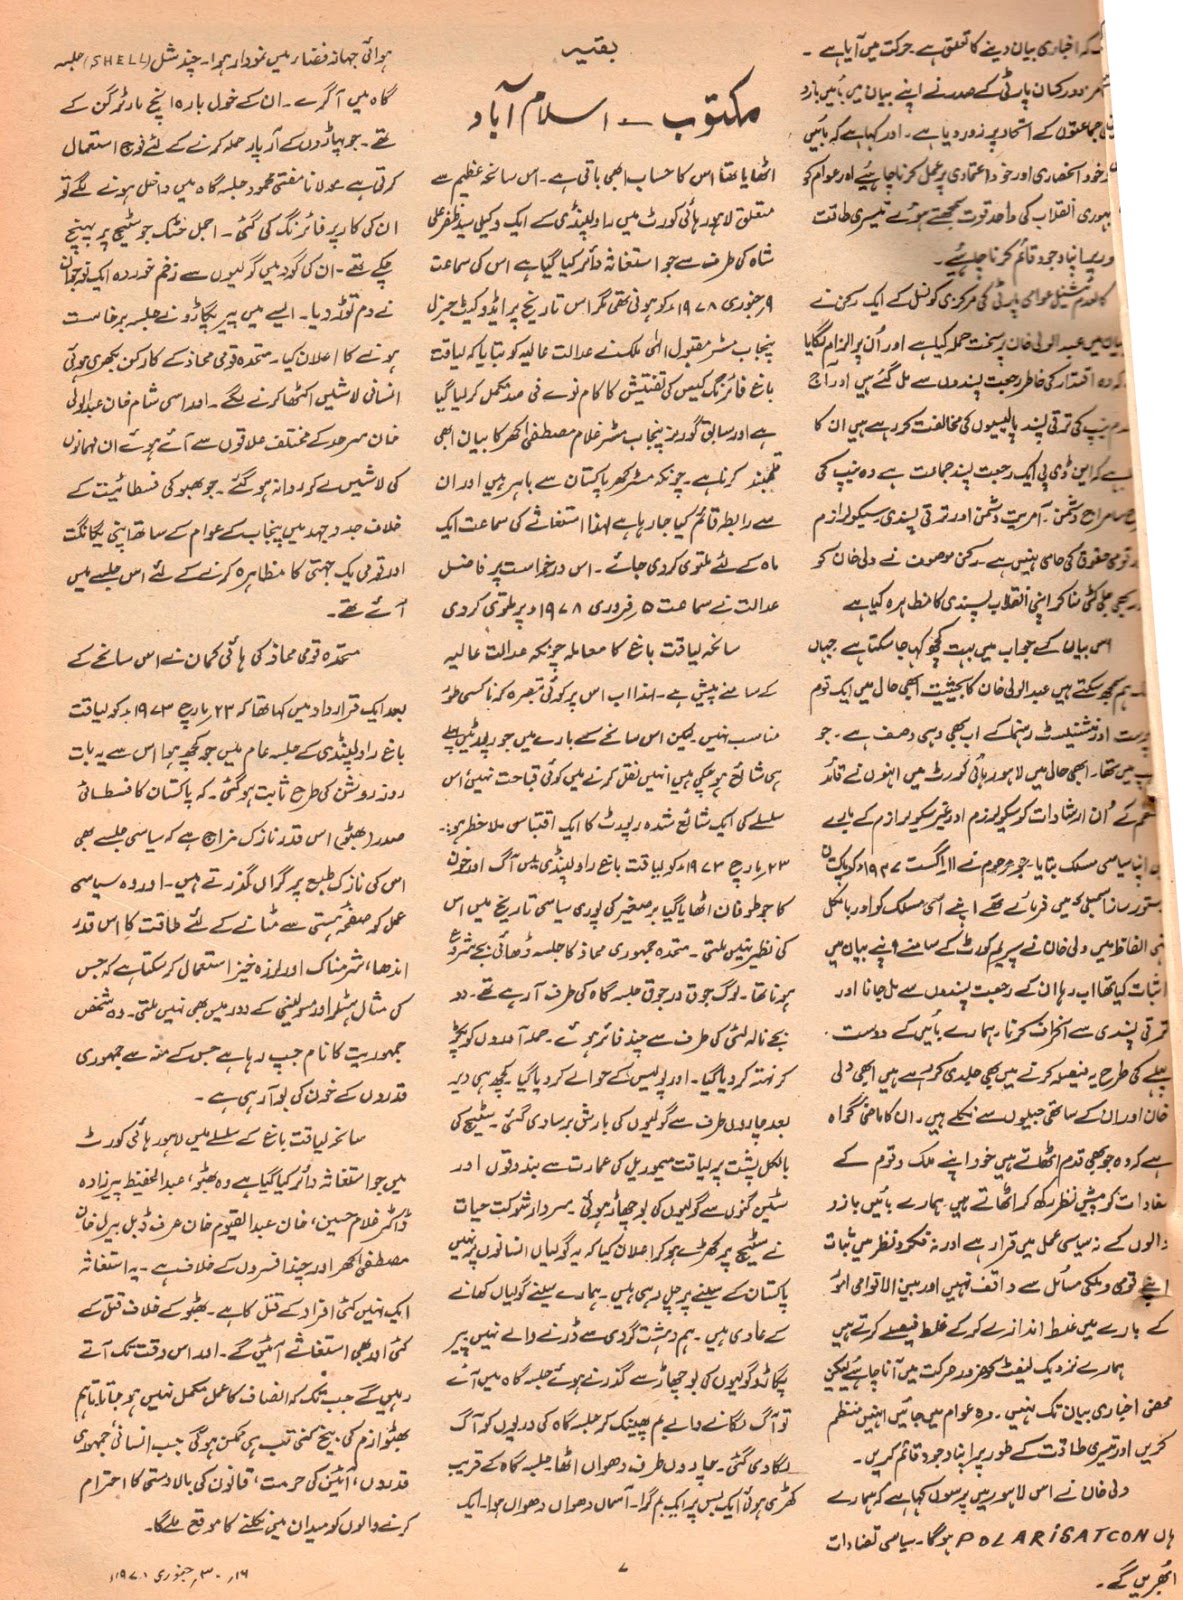 کہ اخباری بیان دینے کا تعلق ہے۔ حرکت میں آیا ہے۔
مزدور کسان پارٹی کے صدر نے اپنے بیان میں بائیں بازو
جماعتوں کے اتحاد پر زور دیا ہے۔ اور کہا ہے کہ بائیں
خود انحصاری اور خود اعتمادی پر عمل کرنا چاہیئے اور عوام کو
انقلاب کی واحد قوت سمجھتے ہوئے تیسری طاقت
اپنا وجود قائم کرنا چاہیئے۔
کالعدم نیشنل عوامی پارٹی کی مرکزی کونسل کے ایک رکن نے
میں عبدالولی خان پر سخت حملہ کیا ہے اور اُن پر الزام لگایا
کہ وہ اقتدار کی خاطر رجعت پسندوں سے مل گئے ہیں اور آج
نیپ کی ترقی پسند پالیسیوں کی مخالفت کر رہے ہیں ان کا
ہے کہ این ڈی پی ایک رجعت پسند جماعت ہے وہ نیپ کی
سامراج دشمن۔ آمریت دشمن اور ترقی پسندی سیکولرازم
قومی حقوق کی حامی نہیں ہے۔ رکن موصوف نے ولی خان کو
جلی کٹی سنا کر اپنی انقلاب پسندی کا مظاہرہ کیا ہے
اس بیان کے جواب میں بہت کچھ کہا جا سکتا ہے جہاں
ہم سمجھ سکتے ہیں عبدالولی خان کا بحیثیت ابھی حال میں ایک قوم
پرست اور نیشنلسٹ رہنما کے اب بھی وہی وصف ہے۔ جو
میں تھا۔ ابھی حال میں لاہور ہائی کورٹ میں انہوں نے قائد
اعظم کے اُن ارشادات کو سیکولرزم اور غیر سیکولرازم کے بارے
اپنا سیاسی مسلک بتایا۔ جو مرحوم نے ۱۱ اگست ۱۹۴۷ء کو پاکستان
دستور ساز اسمبلی میں فرمائے تھے اپنے اسی مسلک کو اور بالکل
الفاظ میں ولی خان نے سپریم کورٹ کے سامنے اپنے بیان میں
اثبات کیا تھا اب رہا ان کے رجعت پسندوں سے مل جانا اور
ترقی پسندی سے انحراف کرنا۔ ہمارے بائیں کے دوست
پہلے کی طرح یہ فیصلہ کرتے میں بھی جلدی کر رہے ہیں ابھی ولی
خان اور ان کے ساتھی جیلوں سے نکلے ہیں۔ ان کا ماضی گواہ
ہے کہ وہ جو بھی قدم اٹھاتے ہیں خود اپنے ملک و قوم کے
مفادات کو پیش نظر رکھ کر اٹھاتے ہیں ہمارے بائیں بازو
والوں کے نہ سیاسی عمل میں قرار ہے اور نہ فکر و نظر میں ثبات
اپنے قومی و ملکی مسائل سے واقف نہیں اور بین الاقوامی امور
کے بارے میں غلط اندازے کر کے غلط فیصلے کرتے ہیں
ہمارے نزدیک لیفٹ کو ضرور حرکت میں آنا چاہیئے لیکن
محض اخباری بیان تک نہیں۔ وہ عوام میں جائیں انہیں منظم
کریں اور تیسری طاقت کے طور پر اپنا وجود قائم کریں۔
ولی خان نے اس لاہور میں پرسوں کہا ہے کہ ہمارے
ہاں POLARISATCON ہوگا۔ سیاسی تضادات
ابھریں گے۔
بقیہ
مکتوب — اسلام آباد
اٹھایا تھا اس کا حساب ابھی باقی ہے۔ اس سانحہ عظیم سے
متعلق لاہور ہائی کورٹ میں راولپنڈی کے ایک وکیل سید ظفر علی
شاہ کی طرف سے جو استغاثہ دائر کیا گیا ہے اس کی سماعت
۹ جنوری ۱۹۷۸ء کو ہونی تھی مگر اس تاریخ پر ایڈووکیٹ جنرل
پنجاب مسٹر مقبول الٰہی ملک نے عدالت عالیہ کو بتایا کہ لیاقت
باغ فائرنگ کیس کی تفتیش کا کام نوے فی صد مکمل کر لیا گیا
ہے اور سابق گورنر پنجاب مسٹر غلام مصطفیٰ کھر کا بیان ابھی
قلمبند کرنا ہے۔ چونکہ مسٹر کھر پاکستان سے باہر ہیں اور ان
سے رابطہ قائم کیا جا رہا ہے لہٰذا استغاثے کی سماعت ایک
ماہ کے لئے ملتوی کر دی جائے۔ اس درخواست پر فاضل
عدالت نے سماعت ۵ فروری ۱۹۷۸ء پر ملتوی کر دی
سانحہ لیاقت باغ کا معاملہ چونکہ عدالت عالیہ
کے سامنے پیش ہے۔ لہٰذا اب اس پر کوئی تبصرہ کرنا کسی طور
مناسب نہیں۔ لیکن اس سانحے کے بارے میں جو رپورٹیں پہلے
ہی شائع ہو چکی ہیں انہیں نقل کرنے میں کوئی قباحت نہیں اس
سلسلے کی ایک شائع شدہ رپورٹ کا ایک اقتباس ملاحظہ ہو:۔
۲۳ مارچ ۱۹۷۳ء کو لیاقت باغ راولپنڈی میں آگ اور خون
کا جو طوفان اٹھایا گیا برصغیر کی پوری سیاسی تاریخ میں اس
کی نظیر نہیں ملتی۔ متحدہ جمہوری محاذ کا جلسہ ڈھائی بجے شروع
ہونا تھا۔ لوگ جوق در جوق جلسہ گاہ کی طرف آ رہے تھے۔ دو
بجے نالہ لئی کی طرف سے چند فائر ہوئے۔ حملہ آوروں کو پکڑ
کر نہتہ کر دیا گیا۔ اور پولیس کے حوالے کر دیا گیا کچھ ہی دیر
بعد چاروں طرف سے گولیوں کی بارش برسا دی گئی۔ سٹیج کی
بالکل پشت پر لیاقت میموریل کی عمارت سے بندوقوں اور
سٹین گنوں سے گولیوں کی بوچھاڑ ہوئی۔ سردار شوکت حیات
نے سٹیج پر کھڑے ہو کر اعلان کیا کہ یہ گولیاں انسانوں پر نہیں
پاکستان کے سینے پر چل رہی ہیں۔ ہمارے سینے گولیاں کھانے
کے عادی ہیں۔ ہم دہشت گردی سے ڈرنے والے نہیں پیر
پگاڑو گولیوں کی بوچھاڑ سے گذرتے ہوئے جلسہ گاہ میں آئے
تو آگ لگانے والے بم پھینک کر جلسہ گاہ کی دریوں کو آگ
لگا دی گئی۔ چاروں طرف دھواں اٹھا جلسہ گاہ کے قریب
کھڑی ہوئی ایک بس پر ایک بم گرا۔ آسمان دھواں دھواں ہوا۔ ایک
ہوائی جہاز فضاء میں نمودار ہوا۔ چند شل (SHELL) جلسہ
گاہ میں آ گرے۔ ان کے خول بارہ انچ مارٹر گن کے
تھے۔ جو پہاڑوں کے آر پار حملہ کرنے کے لئے فوج استعمال
کرتی ہے مولانا مفتی محمود جلسہ گاہ میں داخل ہونے لگے تو
ان کی کار پر فائرنگ کی گئی۔ اجمل خٹک جو سٹیج پر پہنچ
چکے تھے۔ ان کی گود میں گولیوں سے زخم خوردہ ایک نوجوان
نے دم توڑ دیا۔ ایسے میں پیر پگاڑو نے جلسہ برخاست
ہونے کا اعلان کیا۔ متحدہ قومی محاذ کے کارکن بکھری ہوئی
انسانی لاشیں اکٹھا کرنے لگے۔ اور اسی شام خان عبدالولی
خان سرحد کے مختلف علاقوں سے آئے ہوئے ان مہمانوں
کی لاشیں لے کر روانہ ہو گئے۔ جو بھٹو کی فسطائیت کے
خلاف جدوجہد میں پنجاب کے عوام کے ساتھ اپنی یگانگت
اور قومی یک جہتی کا مظاہرہ کرنے کے لئے اس جلسے میں
آئے تھے۔
متحدہ قومی محاذ کی ہائی کمان نے اس سانحے کے
بعد ایک قرارداد میں کہا تھا کہ ۲۳ مارچ ۱۹۷۳ء کو لیاقت
باغ راولپنڈی کے جلسہ عام میں جو کچھ ہوا اس سے یہ بات
روز روشن کی طرح ثابت ہو گئی۔ کہ پاکستان کا فسطائی
صدر (بھٹو) اس قدر نازک مزاج ہے کہ سیاسی جلسے بھی
اس کی نازک طبع پر گراں گذرتے ہیں۔ اور وہ سیاسی
عمل کو صفحہ ہستی سے مٹانے کے لئے طاقت کا اس قدر
اندھا، شرمناک اور لرزہ خیز استعمال کر سکتا ہے کہ جس
کی مثال ہٹلر اور مسولینی کے دور میں بھی نہیں ملتی۔ وہ شخص
جمہوریت کا نام جپ رہا ہے جس کے منہ سے جمہوری
قدروں کے خون کی بو آ رہی ہے۔
سانحہ لیاقت باغ کے سلسلے میں لاہور ہائی کورٹ
میں جو استغاثہ دائر کیا گیا ہے وہ بھٹو، عبدالحفیظ پیرزادہ
ڈاکٹر غلام حسین، خان عبدالقیوم خان عرف ڈبل بیرل خان
مصطفیٰ کھر اور چند افسروں کے خلاف ہے۔ یہ استغاثہ
ایک نہیں کئی افراد کے قتل کا ہے۔ بھٹو کے خلاف قتل کے
کئی اور بھی استغاثے آئیں گے۔ اور اس وقت تک آتے
رہیں گے جب تک کہ انصاف کا عمل مکمل نہیں ہو جاتا تاہم
بھٹو ازم کی بیخ کنی تب ہی ممکن ہوگی جب انسانی جمہوری
قدروں، آئین کی حرمت، قانون کی بالادستی کا احترام
کرنے والوں کو میدان میں نکلنے کا موقع ملے گا۔
۷
۱۶، ۳۰ جنوری ۱۹۷۸ء